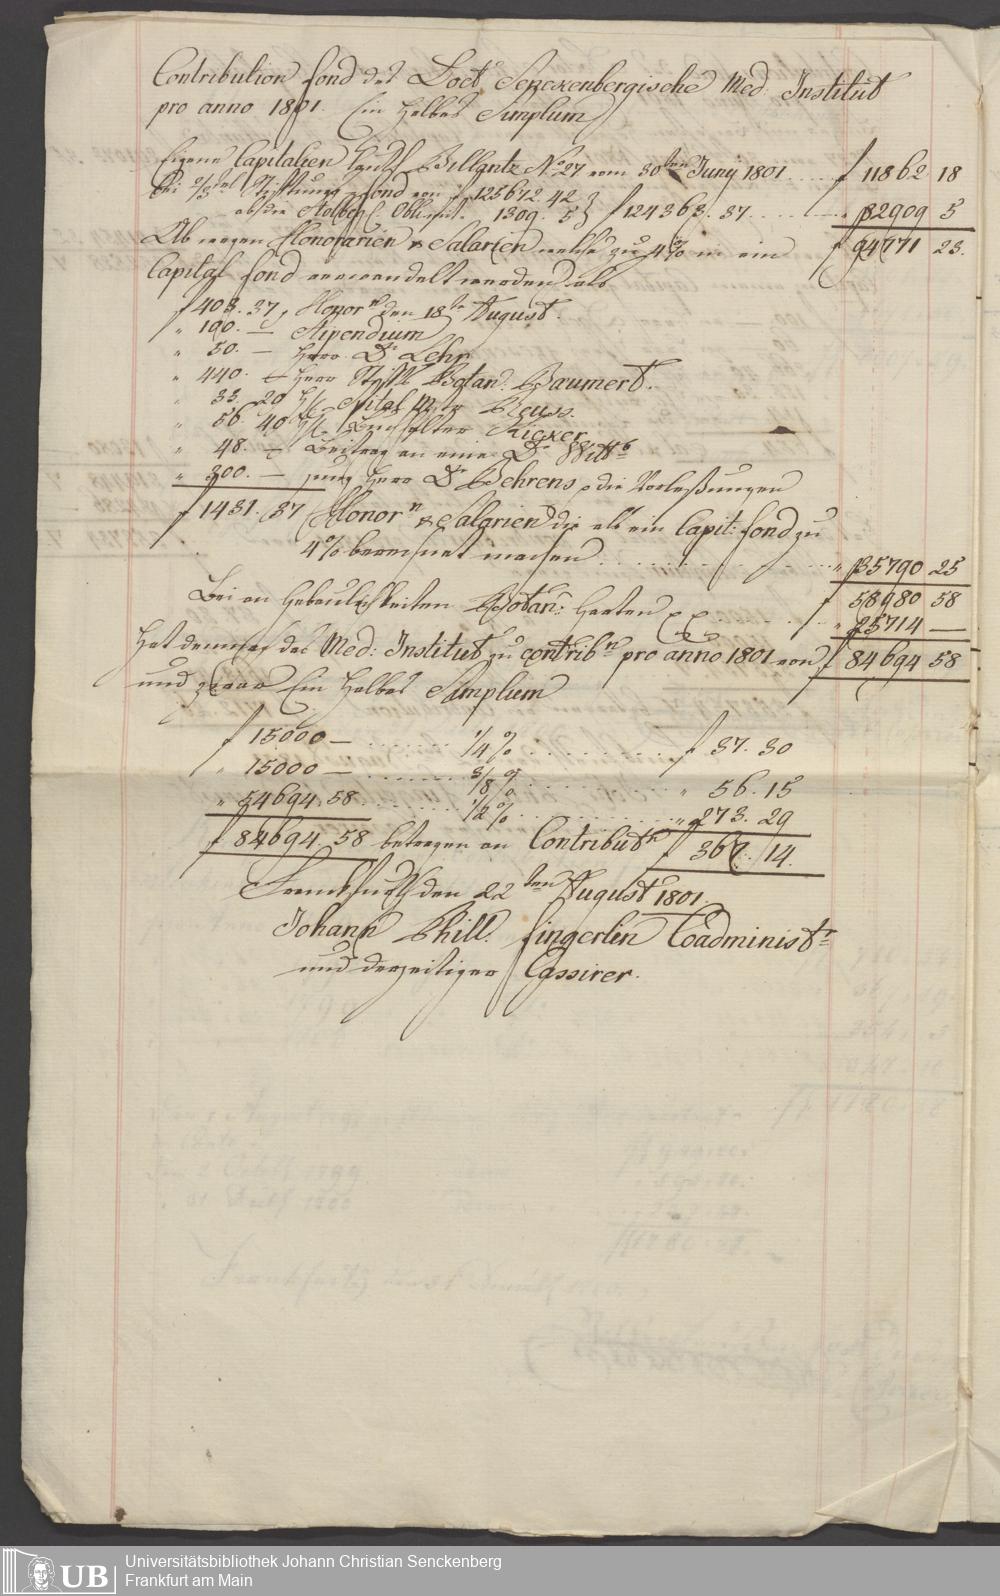 Contribution fond des Doct. Senckenbergische Med. Institut
pro anno 1801. Ein Halbes Simplum
Eigene Capitalien laut Billantz No. 27 vom 30ten Juny 1801 .... f 11862 18
Bei 2/3tel Stiftungs Fond von f 125672. 42
ab die Stolberg. Obligat. 1309. 5 } f 124363. 37 ........ " 82909 5
f 94771 23.
Ab wegen Honorarien & Salarien welche zu 4% in ein
Capital fond verwandelt werden als
f 403. 37, Honorn den 18te August.
" 100. — Stipendium
" 50. — Herr Dr. Lehr
" 440. — Herr Botan: Baumert.
" 33. 20 Spital Mstr Reuss.
" 56. 40 Buchhalter Kiexer
" 48. — Beitrag an eine Dr. Wittb
" 300. — Herr Dr. Behrens die Vorleßungen
f 1431. 37 Honorn & Salarien die als ein Capit: fond zu
4% berechnet machen ........ " 35790 25
f 58980 58
Bei an Gebäulichkeiten Botan: Garten ........ " 25714 —
Hat demnach das Med: Institut zu contribn pro anno 1801 von f 84694 58
und zwar Ein Halbes Simplum
f 15000 — ....... 1/4 % ........ f 37. 30
" 15000 — ........ 3/8 % ........ " 56. 15
" 54694. 58 ........ 1/2 % ........ " 273. 29
f 84694. 58 betragen an Contributn f 367. 14.
Franckfurth den 22ten August 1801.
Johann Phill. Fingerlin Coadministr
und derzeitiger Cassirer.
UB Universitätsbibliothek Johann Christian Senckenberg
Frankfurt am Main